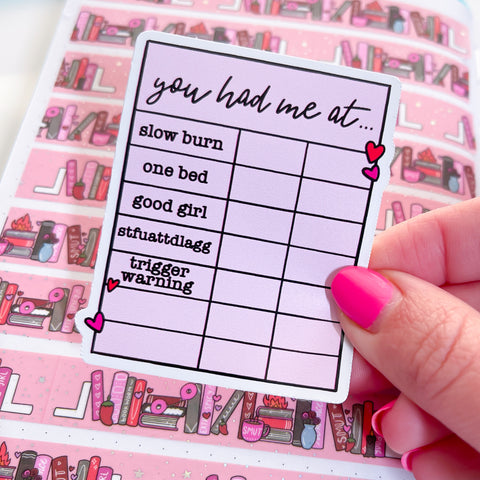 you had me at...
slow burn
one bed
good girl
stfuattdlagg
trigger
warning
SMUT
SMUT
SMUT